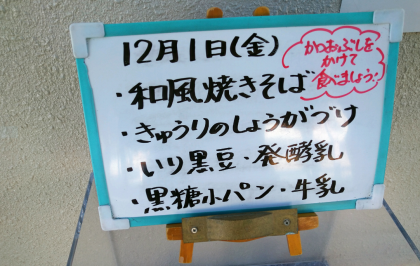 12月1日(金)
・和風焼きそば
かつおぶしを
かけて
食べましょう!
・きゅうりのしょうがづけ
・いり黒豆・発酵乳
・黒糖小パン・牛乳